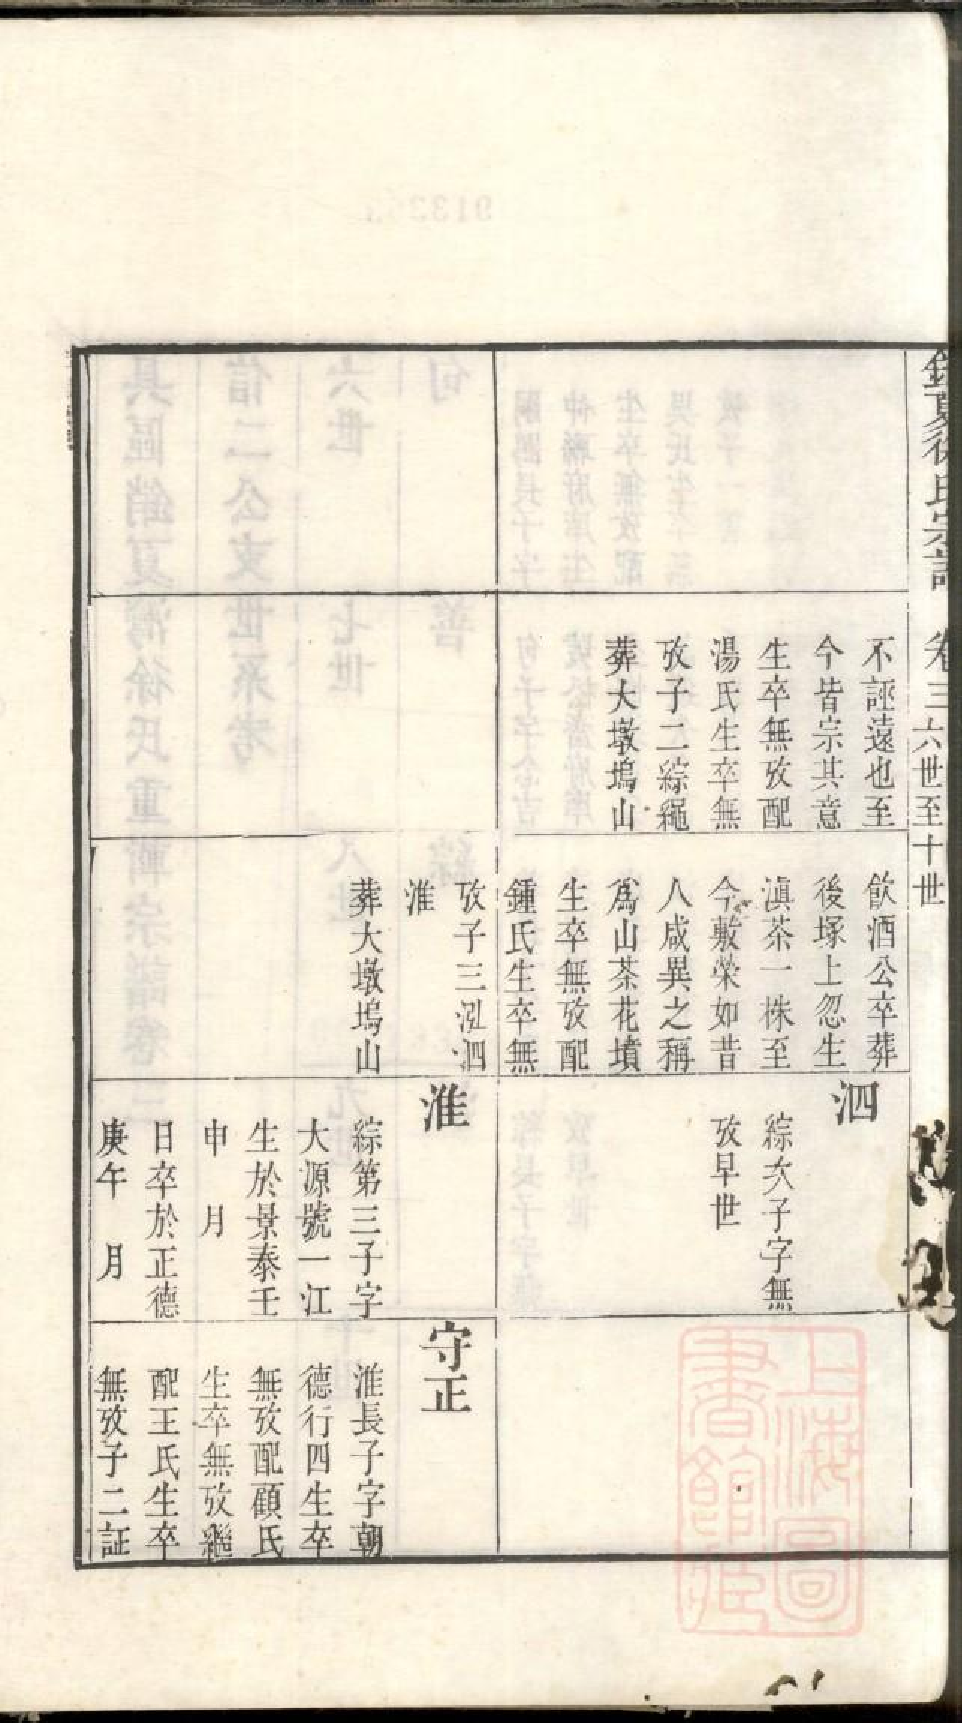 銷夏徐氏宗譜
卷三六世至十世
不誣遠也至
今皆宗其意
生卒無攷配
湯氏生卒無
攷子二綜繩
葬大墩塢山
飲酒公卒葬
後塚上忽生
滇茶一株至
今敷榮如昔
人咸異之稱
爲山茶花墳
生卒無攷配
鍾氏生卒無
攷子三泓泗
淮
葬大墩塢山
泗
綜次子字無
攷早世
淮
綜第三子字
大源號一江
生於景泰壬
申 月
日卒於正德
庚午 月
守正
淮長子字朝
德行四生卒
無攷配顧氏
生卒無攷繼
配王氏生卒
無攷子二証
上海圖
書館藏